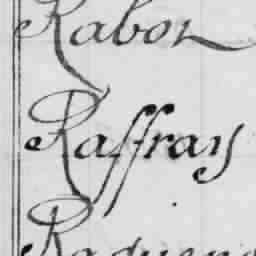 Rabon
Raffray
Raguen